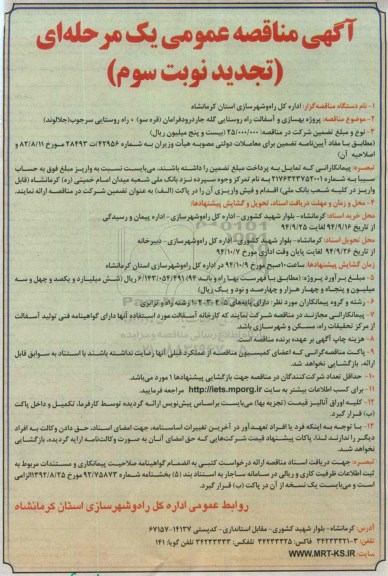 آگهی مناقصه عمومی یک مرحله‌ای
(تجدید نوبت سوم)
۱- نام دستگاه مناقصه‌گزار: اداره کل راه‌وشهرسازی استان کرمانشاه
۲- موضوع مناقصه: پروژه بهسازی و آسفالت راه روستایی گله جاردرودفرامان (قره سو) + راه روستایی سرجوب(جلالوند)
۳- نوع و مبلغ تضمین شرکت در مناقصه: ۲۵/۰۰۰/۰۰۰ (بیست و پنج میلیون ریال)
(مطابق با مفاد آیین‌نامه تضمین برای معاملات دولتی مصوبه هیأت وزیران به شماره ۴۲۹۵۶/ت ۲۸۴۹۳ مورخ ۸۲/۸/۱۱ و
اصلاحیه آن)
تبصره: پیمانکارانی که تمایل به پرداخت مبلغ تضمین را داشته باشند، می‌بایست نسبت به واریز مبلغ فوق به حساب
سیبا به شماره ۲۱۷۶۴۳۳۷۵۲۰۰۱ به نام تمرکز وجوه سپرده نزد بانک ملی شعبه میدان امام خمینی (ره) کرمانشاه (قابل
واریز در کلیه شعب بانک ملی) اقدام و فیش واریزی آن را در پاکت (الف) به عنوان تضمین شرکت در مناقصه ارائه نمایند.
۴- محل و زمان و مهلت دریافت اسناد، تحویل و گشایش پیشنهادها:
محل خرید اسناد: کرمانشاه- بلوار شهید کشوری- اداره کل راه‌وشهرسازی- اداره پیمان و رسیدگی
از تاریخ ۹۴/۹/۱۶ لغایت ۹۴/۹/۲۵
محل تحویل اسناد: کرمانشاه- بلوار شهید کشوری- اداره کل راه‌وشهرسازی- دبیرخانه
از تاریخ ۹۴/۹/۲۶ لغایت پایان وقت اداری مورخ ۹۴/۱۰/۷
زمان گشایش پیشنهادها: ساعت ۱۰صبح مورخ ۹۴/۱۰/۹ در اداره کل راه‌وشهرسازی استان کرمانشاه
۵- مبلغ برآورد پروژه: (مطابق با فهرست بهاء راه و باند ۹۴) ۶/۱۴۳/۰۵۴/۴۹۱ ریال (شش میلیارد و یکصد و چهل و سه
میلیون و پنجاه و چهار هزار و چهارصد و نود و یک ریال)
۶- رشته و گروه پیمانکاران مورد نظر: دارای پایه‌های ۵-۴-۳-۲-۱ رشته راه و ترابری
۷- پیمانکارانی مجازند در مناقصه شرکت نمایند که کارخانه آسفالت مورد استفاده آنها دارای گواهینامه فنی تولید آسفالت
از مرکز تحقیقات راه، مسکن و شهرسازی باشد.
۸- هزینه چاپ آگهی بر عهده برنده مناقصه است.
۹- پاکت مناقصه‌گرانی که اعضای کمیسیون مناقصه از عملکرد قبلی آنها رضایت نداشته باشند با استناد به سوابق قابل
ارائه، بازگشایی نخواهد شد.
۱۰- حداقل تعداد شرکت‌کنندگان در مناقصه جهت بازگشایی پیشنهادها ۱ مورد می‌باشد.
۱۱- برای کسب اطلاعات بیشتر به سایت http://iets.mporg.ir مراجعه فرمایید.
۱۲- کلیه اوراق آنالیز قیمت (تجزیه بها) می‌بایست براساس پیش‌نویس ارائه گردیده توسط کارفرما، تکمیل و داخل پاکت
(ب) قرار گیرد.
۱۳- با توجه به اینکه فرد یا افراد تعهدآور در آخرین تغییرات اساسنامه، جهت امضای اسناد، حق دادن وکالت به افراد
دیگر را ندارند لذا، پاکات پیشنهاد قیمت شرکت‌هایی که حق امضای آنان به صورت وکالت‌نامه ارایه گردیده، بازگشایی
نخواهد شد.
تبصره: جهت دریافت اسناد مناقصه ارائه درخواست کتبی به انضمام گواهینامه صلاحیت پیمانکاری و مستندات مربوط به
ثبت اطلاعات ظرفیت کاری و ریالی در سامانه ساجار به استناد بند (۵) بخشنامه شماره ۹۲/۷۵۸۷۳ مورخ ۱۳۹۲/۸/۲۵الزامی
است و می‌بایست یک نسخه از آن در پاکت (ب) قرار گیرد.
روابط عمومی اداره کل راه‌وشهرسازی استان کرمانشاه
آدرس: کرمانشاه- بلوار شهید کشوری- مقابل استانداری- کدپستی ۱۴۱۳۷-۶۷۱۵۷
تلفن: ۳-۳۴۲۳۳۳۲۱ فاکس: ۳۴۲۳۳۳۲۵ تلفکس: ۳۴۲۳۳۳۳۳ تلفن گویا: ۱۴۱
www.MRT-KS.IR